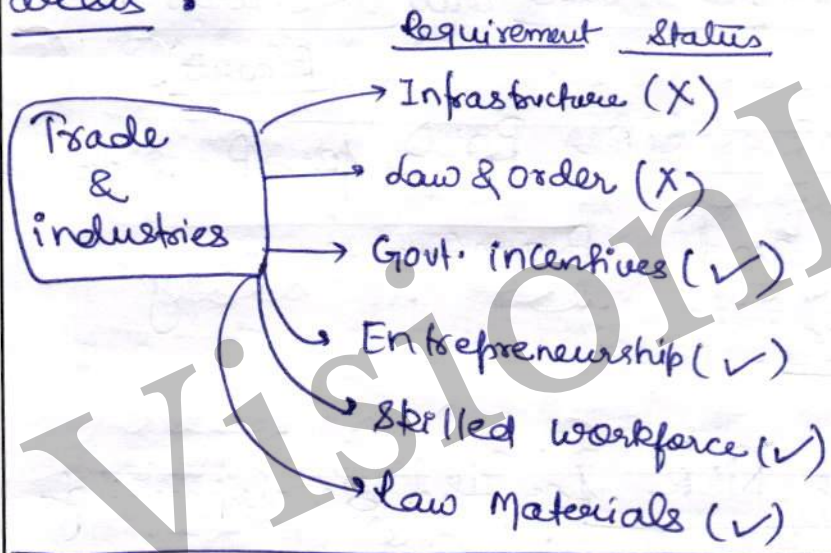 Requirement Status
Trade
&
industries
Infrastructure (X)
Law & order (X)
Govt. incentives (✓)
Entrepreneurship (✓)
Skilled workforce (✓)
Raw Materials (✓)
VisionI